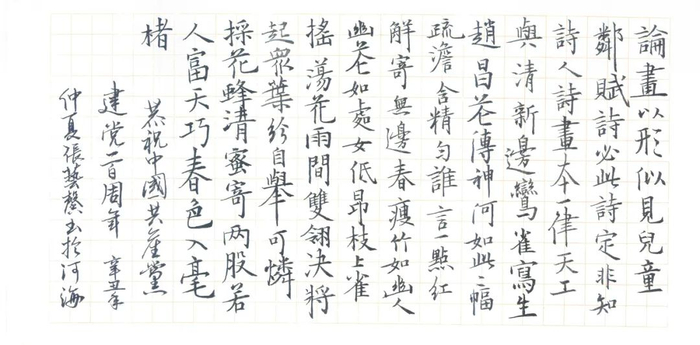 論畫以形似見兒童
鄰賦詩必此詩定非知
詩人詩畫本一律天工
與清新邊鸞雀寫生
趙昌花傳神何如此二幅
疏澹含精勻誰言一點紅
解寄無邊春瘦竹如幽人
幽花如處女低昂枝上雀
搖蕩花雨間雙翎决將
起眾葉紛自舉可憐
採花蜂清蜜寄两股若
人富天巧春色入毫
楮 恭祝中國共産黨
建党一百周年 辛丑年
仲夏張藝馨书於河海